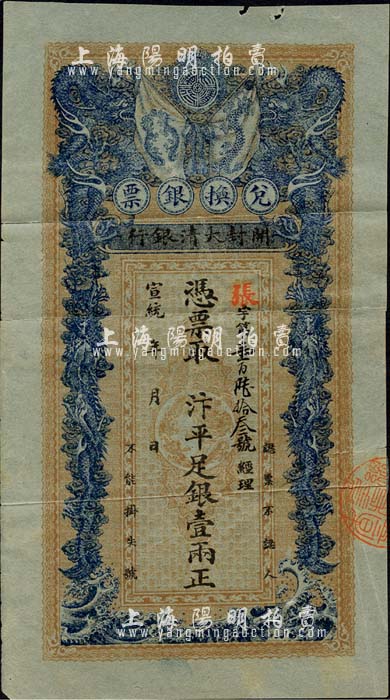 上海陽明拍賣
www.yangmingauction.com
兌換銀票
開封大清銀行
張字第 百陸拾叁號 經理
認票不認人
憑票取 汴平足銀壹兩正
宣統 年 月 日
不能掛失號
上海陽明拍賣
www.yangmingauction.com
上海陽明拍賣
www.yangmingauction.com